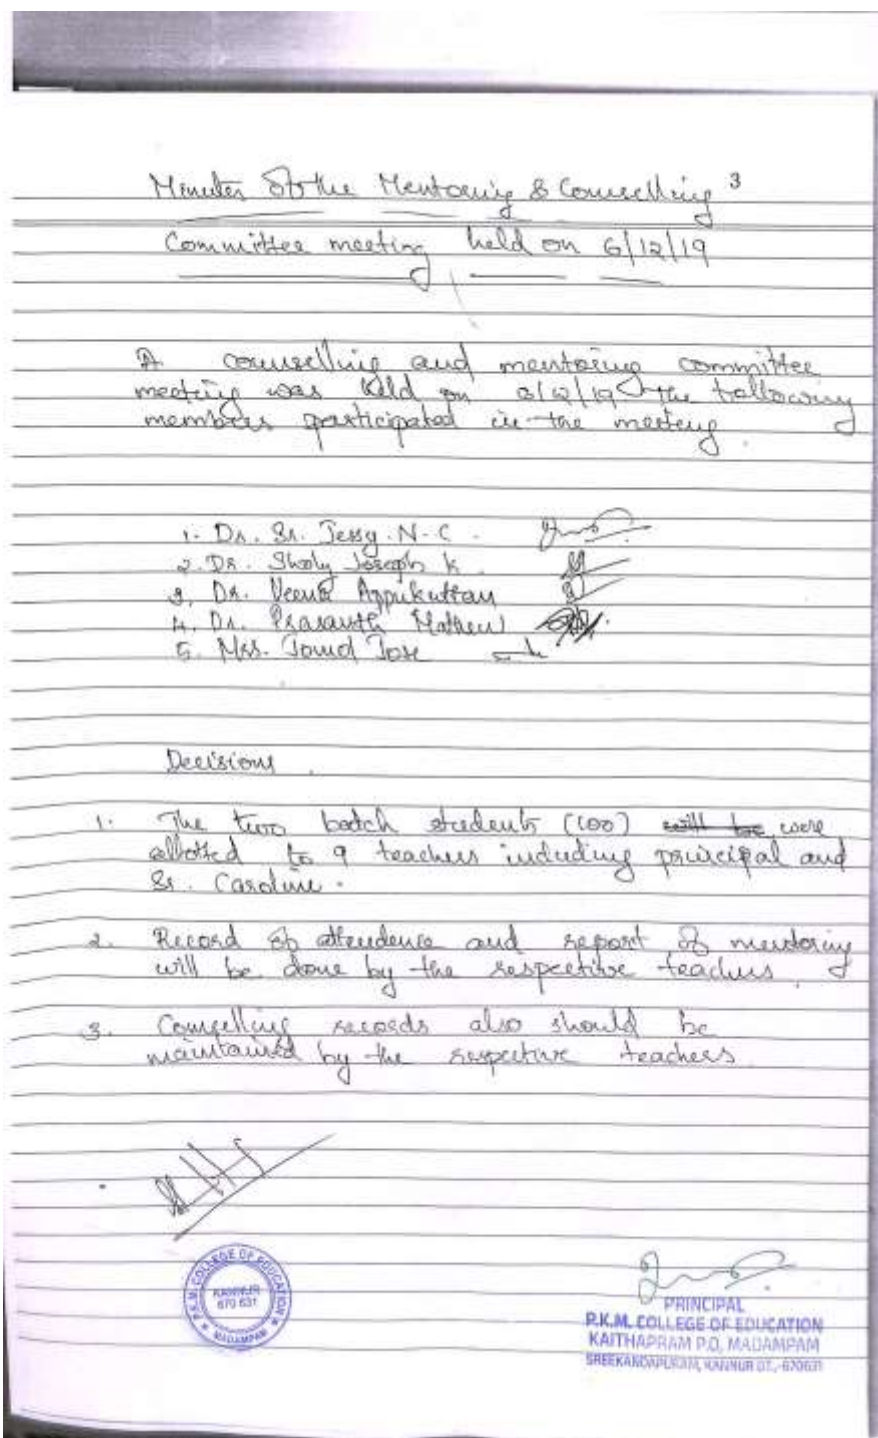 Minutes of the Mentoring & Counselling 3
Committee meeting held on 6/12/19
A counselling and mentoring committee
meeting was held on 6/12/19 The following
members participated in the meeting.
1. Dr. Sr. Jessy. N. C.
2. Dr. Sholy Joseph K.
3. Dr. Veena Appukuttan
4. Dr. Prasanth Mathew
5. Mrs. Jose
Decisions.
1. The two batch students (100) will be were
allotted to 9 teachers including principal and
Sr. Caroline.
2. Record of attendence and report of mentoring
will be done by the respective teachers.
3. Counselling records also should be
maintained by the respective teachers.
P.K.M. COLLEGE OF EDUCATION
KANNUR
670 631
MADAMPAM
PRINCIPAL
P.K.M. COLLEGE OF EDUCATION
KAITHAPRAM P.O, MADAMPAM
SREEKANDAPURAM, KANNUR DT.,-670631